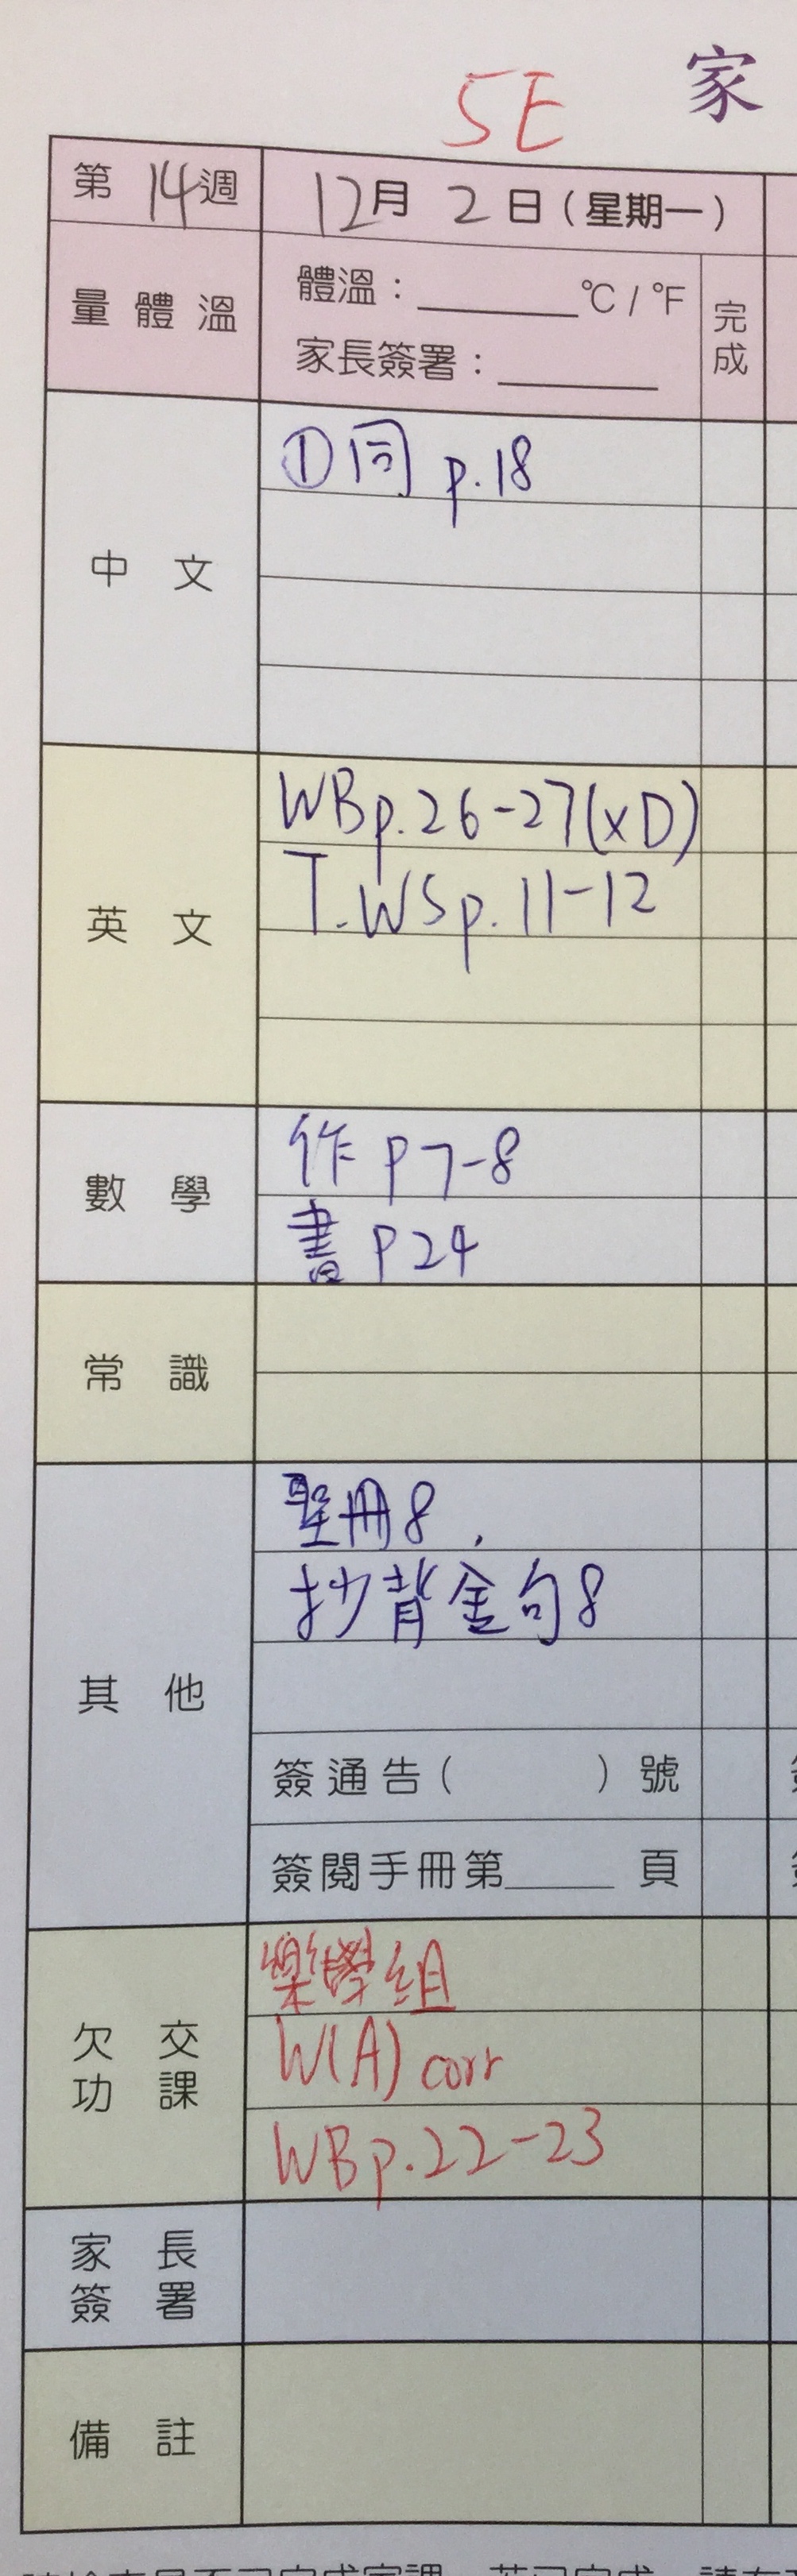 5E 家
第 14 週 12月 2 日 (星期一)
量體溫
體溫:______°C / °F
家長簽署:______
完成
中文
① 同 p.18
英文
WB p.26-27 (xD)
T.WS p.11-12
數學
作 P7-8
書 P24
常識
其他
聖冊8.
抄背金句8
簽通告( )號
簽閱手冊第____頁
欠交功課
樂學組
W(A) corr
WB p.22-23
家長簽署
備註